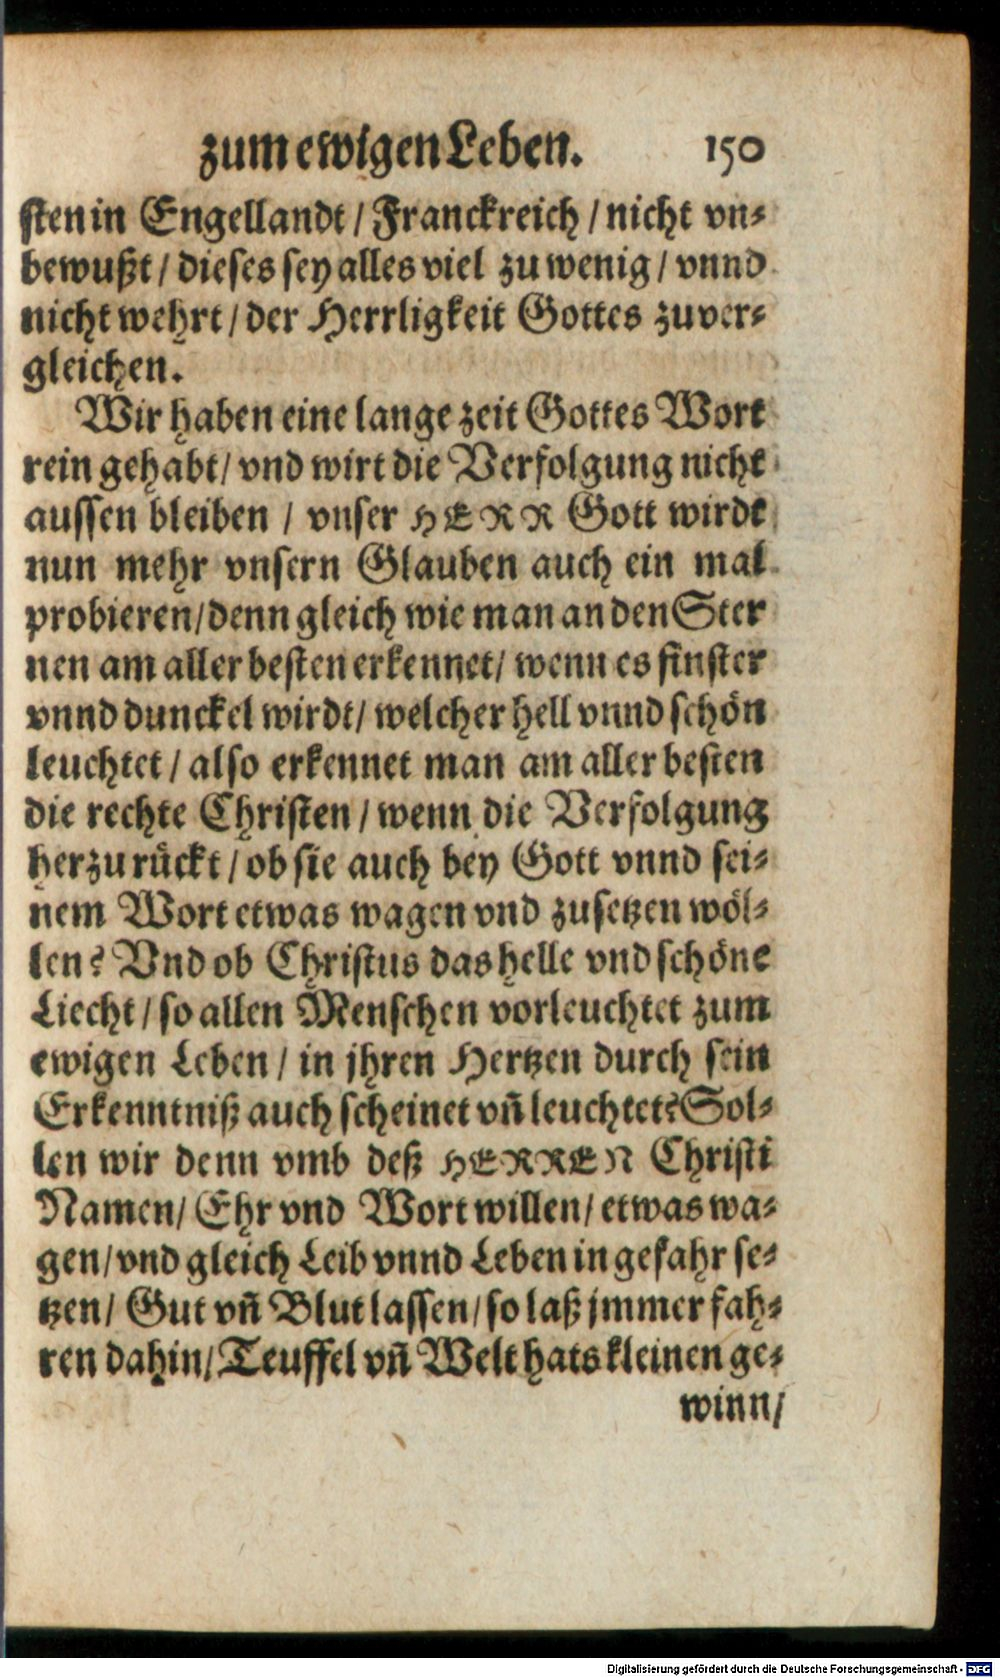 zum ewigen Leben. 150
sten in Engellandt / Franckreich / nicht vn-
bewußt / dieses sey alles viel zu wenig / vnnd
nicht wehrt / der Herrligkeit Gottes zuver-
gleichen.
Wir haben eine lange zeit Gottes Wort
rein gehabt / vnd wirt die Verfolgung nicht
aussen bleiben / vnser HERR Gott wirdt
nun mehr vnsern Glauben auch ein mal
probieren / denn gleich wie man an den Ster
nen am aller besten erkennet / wenn es finster
vnnd dunckel wirdt / welcher hell vnnd schön
leuchtet / also erkennet man am aller besten
die rechte Christen / wenn die Verfolgung
herzu rückt / ob sie auch bey Gott vnnd sei-
nem Wort etwas wagen vnd zusetzen wöl-
len? Vnd ob Christus das helle vnd schöne
Liecht / so allen Menschen vorleuchtet zum
ewigen Leben / in jhren Hertzen durch sein
Erkenntniß auch scheinet vñ leuchtet? Sol-
len wir denn vmb deß HERREN Christi
Namen / Ehr vnd Wort willen / etwas wa-
gen / vnd gleich Leib vnnd Leben in gefahr se-
tzen / Gut vñ Blut lassen / so laß jmmer fah-
ren dahin / Teuffel vñ Welt hats kleinen ge-
winn /
Digitalisierung gefördert durch die Deutsche Forschungsgemeinschaft - DFG